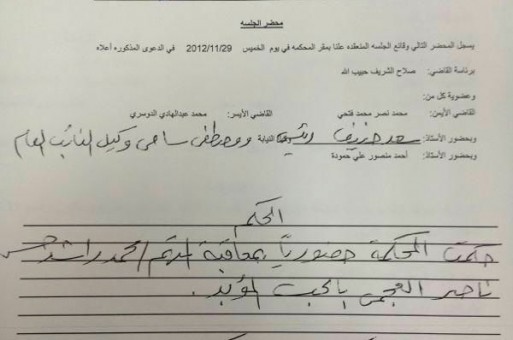 محضر الجلسه
يسجل المحضر التالي وقائع الجلسه المنعقده علنا بمقر المحكمه في يوم الخميس 2012/11/29 في الدعوى المذكوره أعلاه
برئاسة القاضي: صلاح الشريف حبيب الله
وعضوية كل من:
القاضي الأيمن: محمد نصر محمد فتحي القاضي الأيسر: محمد عبدالهادي الدوسري
وبحضور الأستاذ: سعد النيابة ومصطفى سامى وكيل النائب العام
وبحضور الأستاذ: أحمد منصور علي حمودة
الحكم
حكمت المحكمة حضورياً بمعاقبة المتهم / محمد راشد حسن
ناصر العجمى بالحبس المؤبد.